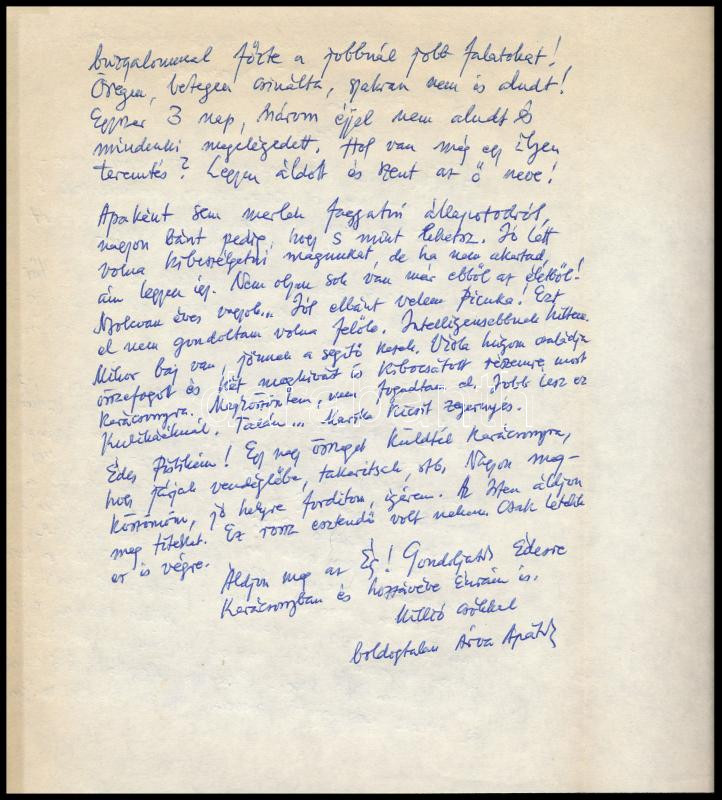 buzgalommal főzte a jobbnál jobb falatokat!
Öregen, betegen csinálta, gyakran nem is aludt!
Egyszer 3 nap, három éjjel nem aludt és
mindenki megelégedett. Hol van még egy ilyen
teremtés? Legyen áldott és szent az ő neve!
Apaként sem merlek faggatni állapotodról,
nagyon bánt pedig, hogy s mint lehetsz. Jó lett
volna kibeszélgetni magunkat, de ha nem akartad,
ám legyen így. Nem olyan sok van már ebből az életből!
Nyolcvan éves vagyok... Jól elbánt velem Picuka! Ezt
el nem gondoltam volna felőle. Intelligensebbnek hittem.
Mikor baj van, jönnek a segítő kezek. húgom családja
összefogott és hét meghívást is kibocsátott részemre most
Karácsonyra. Megköszöntem, nem fogadtam el. Jobb lesz ez
Talán... Mariska kicsit zsgernyés.
Édes Pistikém! Egy nagy összeget küldtél Karácsonyra,
hogy járjak vendéglőbe, takarítsak, stb. Nagyon meg-
köszönöm, jó helyre fordítom, ígérem. Az Isten áldjon
meg titeket. Ez rossz esztendő volt nekem. Csak letelik
ez is végre.
Áldjon meg az Ég! Gondoljatok Édesre
Karácsonyban és hozzávéve Énrám is.
Millió csókkal
boldogtalan Árva Apátok